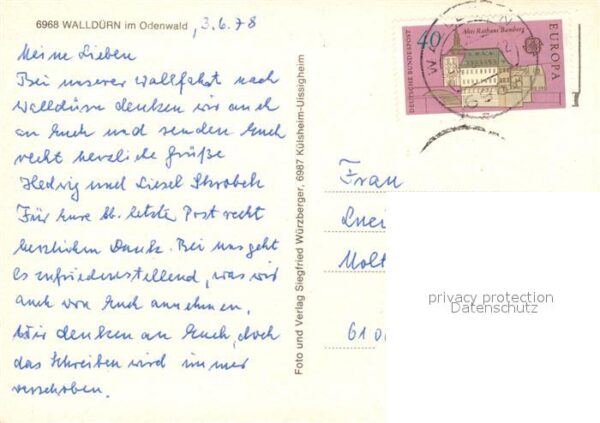 6968 WALLDÜRN im Odenwald , 3.6.78
Meine Lieben
Bei unserer Wallfahrt nach
Walldürn denken wir auch
an Euch und senden Euch
recht herzliche Grüße
Hedwig und Liesel
Für Eure lb. letzte Post recht
herzlichen Dank. Bei uns geht
es zufriedenstellend, was wir
auch von Euch annehmen.
Wir denken an Euch, doch
das Schreiben wird immer
verschoben.
Foto und Verlag Siegfried Würzberger, 6987 Külsheim-Uissigheim
40
Altes Rathaus Bamberg
EUROPA
DEUTSCHE BUNDESPOST
Frau
Molt
61
privacy protection
Datenschutz